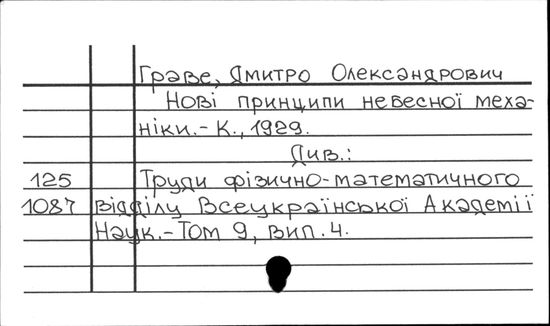 Граве, Дмитро Олександрович
Нові принципи небесної меха-
ніки.- К., 1929.
Див.:
125 Труди фізично-математичного
1087 відділу Всеукраїнської Академії
Наук.- Том 9, вип. 4.